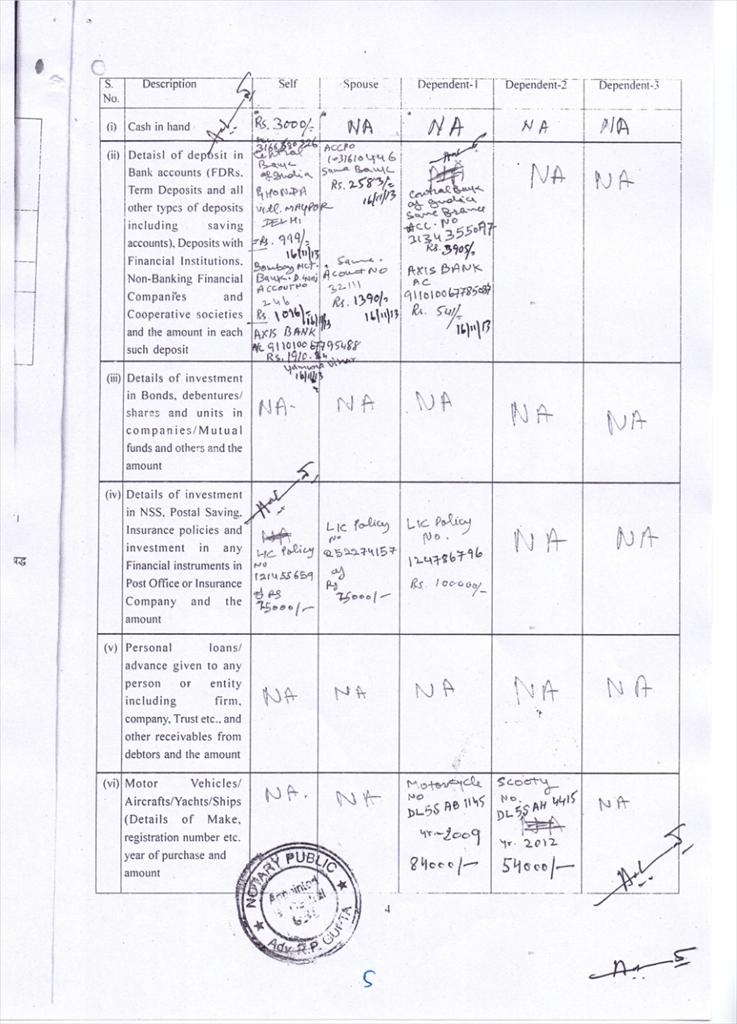 S. No.
Description
Self
Spouse
Dependent-1
Dependent-2
Dependent-3
(i)
Cash in hand
Rs. 3000/-
NA
NA
NA
NA
(ii)
Detaisl of deposit in
Bank accounts (FDRs.
Term Deposits and all
other types of deposits
including saving
accounts), Deposits with
Financial Institutions,
Non-Banking Financial
Companies and
Cooperative societies
and the amount in each
such deposit
Central
Bank
of India
GHONDA
DELHI
Rs. 999/-
16/11/13
Bank
Account No
246
16/11/13
AXIS BANK
Yamuna Vihar
16/11/13
Same Bank
Rs. 2583/-
16/11/13
Same
Acount No
32111
Rs. 1390/-
16/11/13
Central Bank
of India
Same Brance
ACC. NO
Rs. 3905/-
AXIS BANK
AC
16/11/13
NA
NA
(iii)
Details of investment
in Bonds, debentures/
shares and units in
companies/Mutual
funds and others and the
amount
NA-
NA
NA
NA
NA
(iv)
Details of investment
in NSS, Postal Saving,
Insurance policies and
investment in any
Financial instruments in
Post Office or Insurance
Company and the
amount
LIC Policy
NO
121455659
of RS
75000/-
LIC Policy
No
252274157
of
Rs
75000/-
LIC Policy
No.
124786796
Rs. 100000/-
NA
NA
(v)
Personal loans/
advance given to any
person or entity
including firm,
company, Trust etc., and
other receivables from
debtors and the amount
NA
NA
NA
NA
NA
(vi)
Motor Vehicles/
Aircrafts/Yachts/Ships
(Details of Make,
registration number etc.
year of purchase and
amount
NA.
NA
Motorcycle
No
DL5S AB 1145
yr-2009
84000/-
Scooty
No.
DL5S AH 4415
yr. 2012
54000/-
NA
NOTARY PUBLIC
Appointed
Adv. R.P. GUPTA
4
5